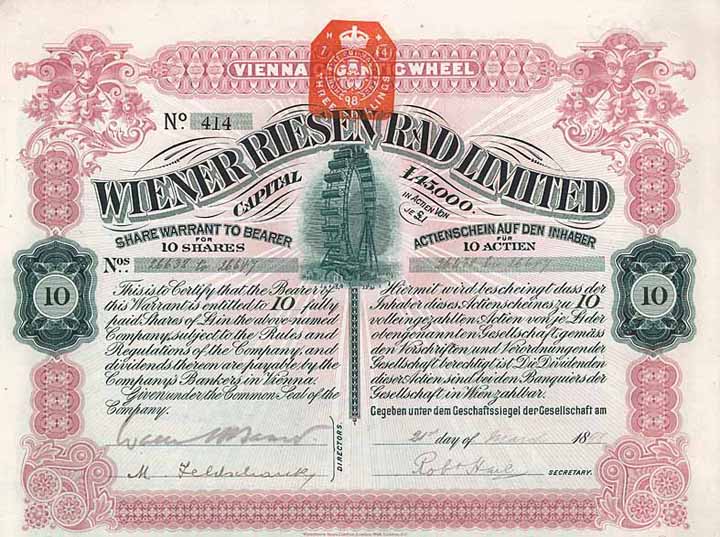 VIENNA GIGANTIC WHEEL
H 7 14
THREE SHILLINGS
98
Nº 414
WIENER RIESEN RAD LIMITED
CAPITAL £45,000.
IN ACTIEN VON JE £1
SHARE WARRANT TO BEARER
FOR
10 SHARES
Nos 26638 to 26647
ACTIENSCHEIN AUF DEN INHABER
FÜR
10 ACTIEN
26638 bis 26647
10
This is to Certify that the Bearer of
this Warrant is entitled to 10 fully
paid Shares of £1 in the above-named
Company, subject to the Rules and
Regulations of the Company, and
dividends thereon are payable by the
Company's Bankers in Vienna.
Given under the Common Seal of the
Company.
Hiermit wird bescheinigt dass der
Inhaber dieses Actienscheines zu 10
volleingezahlten Actien von je £1 der
obengenannten Gesellschaft gemäss
den Vorschriften und Verordnungen der
Gesellschaft berechtigt ist. Die Dividenden
dieser Actien sind bei den Banquiers der
Gesellschaft in Wien zahlbar.
10
Gegeben unter dem Geschaftssiegel der Gesellschaft am
21st day of March 189
DIRECTORS.
Robt Hail
SECRETARY.